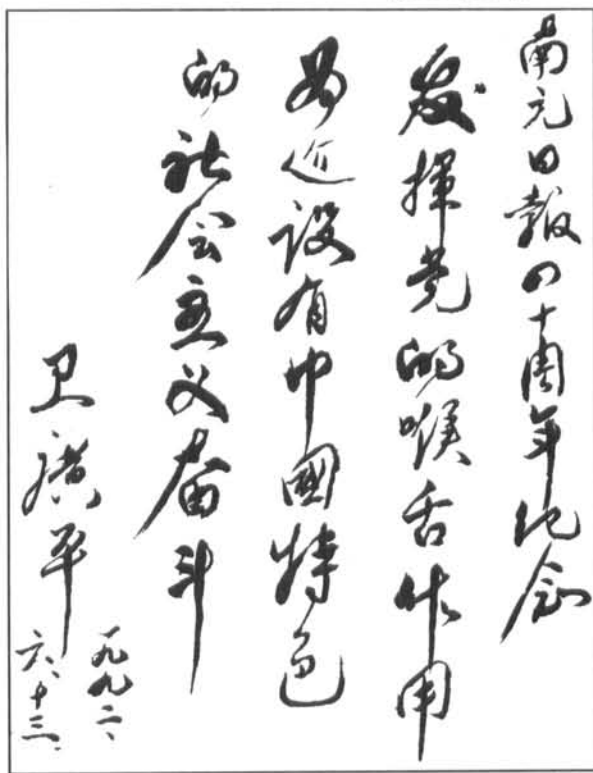 南充日報四十周年纪念
发揮党的喉舌作用
为建设有中國特色
的社会主义奋斗
卫广平
一九九二、
六、十三、